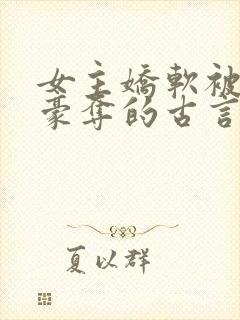 女主嬌軟被
豪奪的古言
夏以群